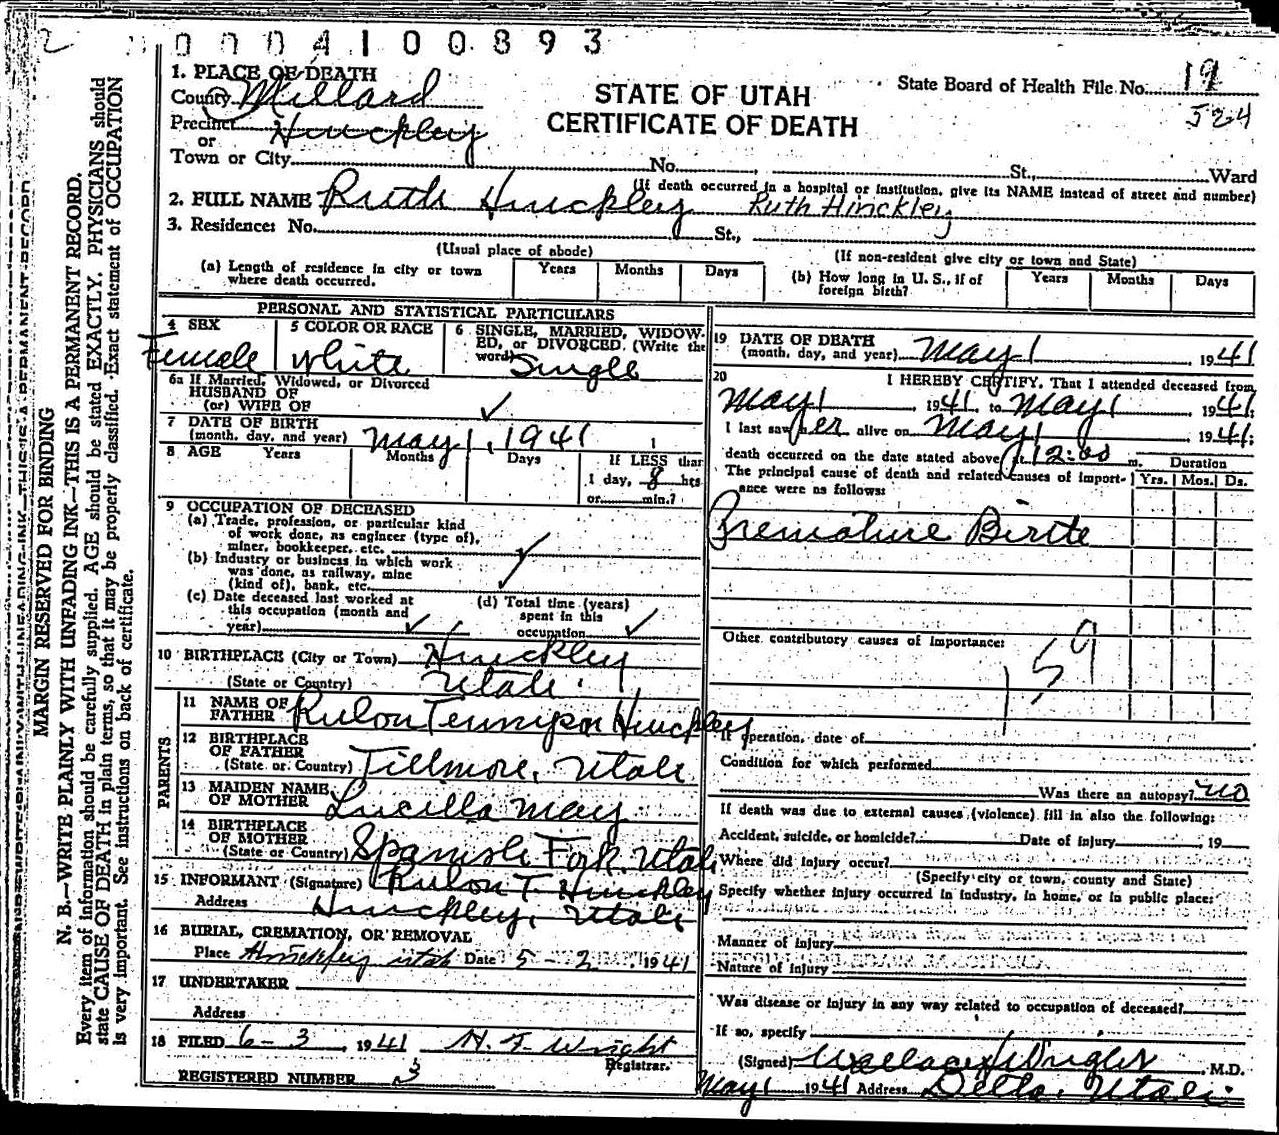 2 0004100893
1. PLACE OF DEATH
County Millard
STATE OF UTAH
CERTIFICATE OF DEATH
State Board of Health File No. 19
524
Precinct Hinckley
or
Town or City No. St., Ward
(If death occurred in a hospital or institution, give its NAME instead of street and number)
2. FULL NAME Ruth Hinckley Ruth Hinckley
3. Residence: No. St.,
(Usual place of abode) (If non-resident give city or town and State)
(a) Length of residence in city or town where death occurred. Years Months Days
(b) How long in U. S., if of foreign birth? Years Months Days
MARGIN RESERVED FOR BINDING
N. B.—WRITE PLAINLY WITH UNFADING INK—THIS IS A PERMANENT RECORD.
Every item of information should be carefully supplied. AGE should be stated EXACTLY. PHYSICIANS should
state CAUSE OF DEATH in plain terms, so that it may be properly classified. Exact statement of OCCUPATION
is very important. See instructions on back of certificate.
PERSONAL AND STATISTICAL PARTICULARS
4 SEX Female
5 COLOR OR RACE White
6 SINGLE, MARRIED, WIDOWED, or DIVORCED. (Write the word) Single
6a If Married, Widowed, or Divorced
HUSBAND OF
(or) WIFE OF ✓
7 DATE OF BIRTH
(month, day, and year) May 1, 1941
8 AGE Years Months Days If LESS than
1 day, 8 hrs
or min.?
9 OCCUPATION OF DECEASED
(a) Trade, profession, or particular kind
of work done, as engineer (type of),
miner, bookkeeper, etc. ✓
(b) Industry or business in which work
was done, as railway, mine
(kind of), bank, etc. ✓
(c) Date deceased last worked at
this occupation (month and
year) ✓
(d) Total time (years)
spent in this
occupation ✓
10 BIRTHPLACE (City or Town) Hinckley
(State or Country) Utah
PARENTS
11 NAME OF
FATHER Rulon Tennyson Hinckley
12 BIRTHPLACE
OF FATHER
(State or Country) Fillmore, Utah
13 MAIDEN NAME
OF MOTHER Lucilla May
14 BIRTHPLACE
OF MOTHER
(State or Country) Spanish Fork, Utah
15 INFORMANT (Signature) Rulon T. Hinckley
Address Hinckley, Utah
16 BURIAL, CREMATION, OR REMOVAL
Place Hinckley utah Date 5-2 1941
17 UNDERTAKER
Address
18 FILED 6-3, 1941 H. F. Wright
Registrar.
REGISTERED NUMBER 3
19 DATE OF DEATH
(month, day, and year) May 1 1941
20 I HEREBY CERTIFY, That I attended deceased from
May 1, 1941, to May 1, 1941;
I last saw her alive on May 1, 1941;
death occurred on the date stated above at 12:00 m. Duration
The principal cause of death and related causes of importance were as follows: Yrs. Mos. Ds.
Premature Birth
Other contributory causes of importance:
159
If operation, date of
Condition for which performed
Was there an autopsy? no
If death was due to external causes (violence) fill in also the following:
Accident, suicide, or homicide? Date of injury, 19
Where did injury occur?
(Specify city or town, county and State)
Specify whether injury occurred in industry, in home, or in public place:
Manner of injury
Nature of injury
Was disease or injury in any way related to occupation of deceased?
If so, specify
(Signed) Wright M.D.
May 1 1941 Address Delta, Utah